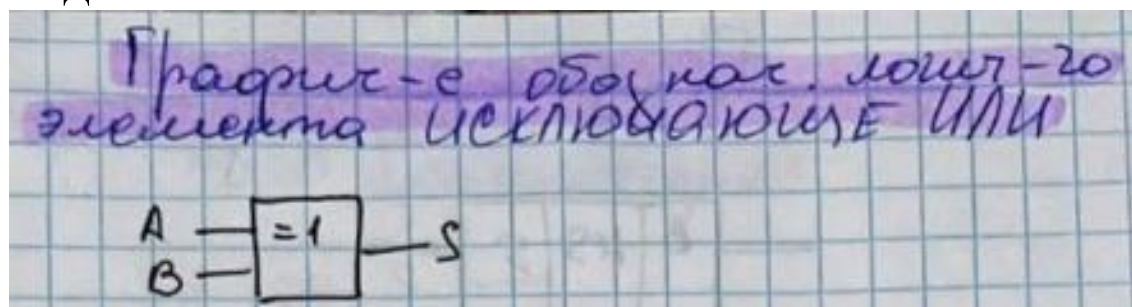 Графич-е обознач. логич-го
элемента ИСКЛЮЧАЮЩЕ ИЛИ
A =1 S
B